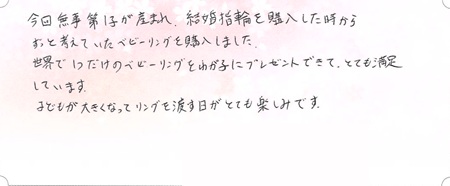 今回無事第1子が産まれ、結婚指輪を購入した時から
ずっと考えていたベビーリングを購入しました。
世界で1つだけのベビーリングをわが子にプレゼントできて、とても満足
しています。
子どもが大きくなってリングを渡す日がとても楽しみです。